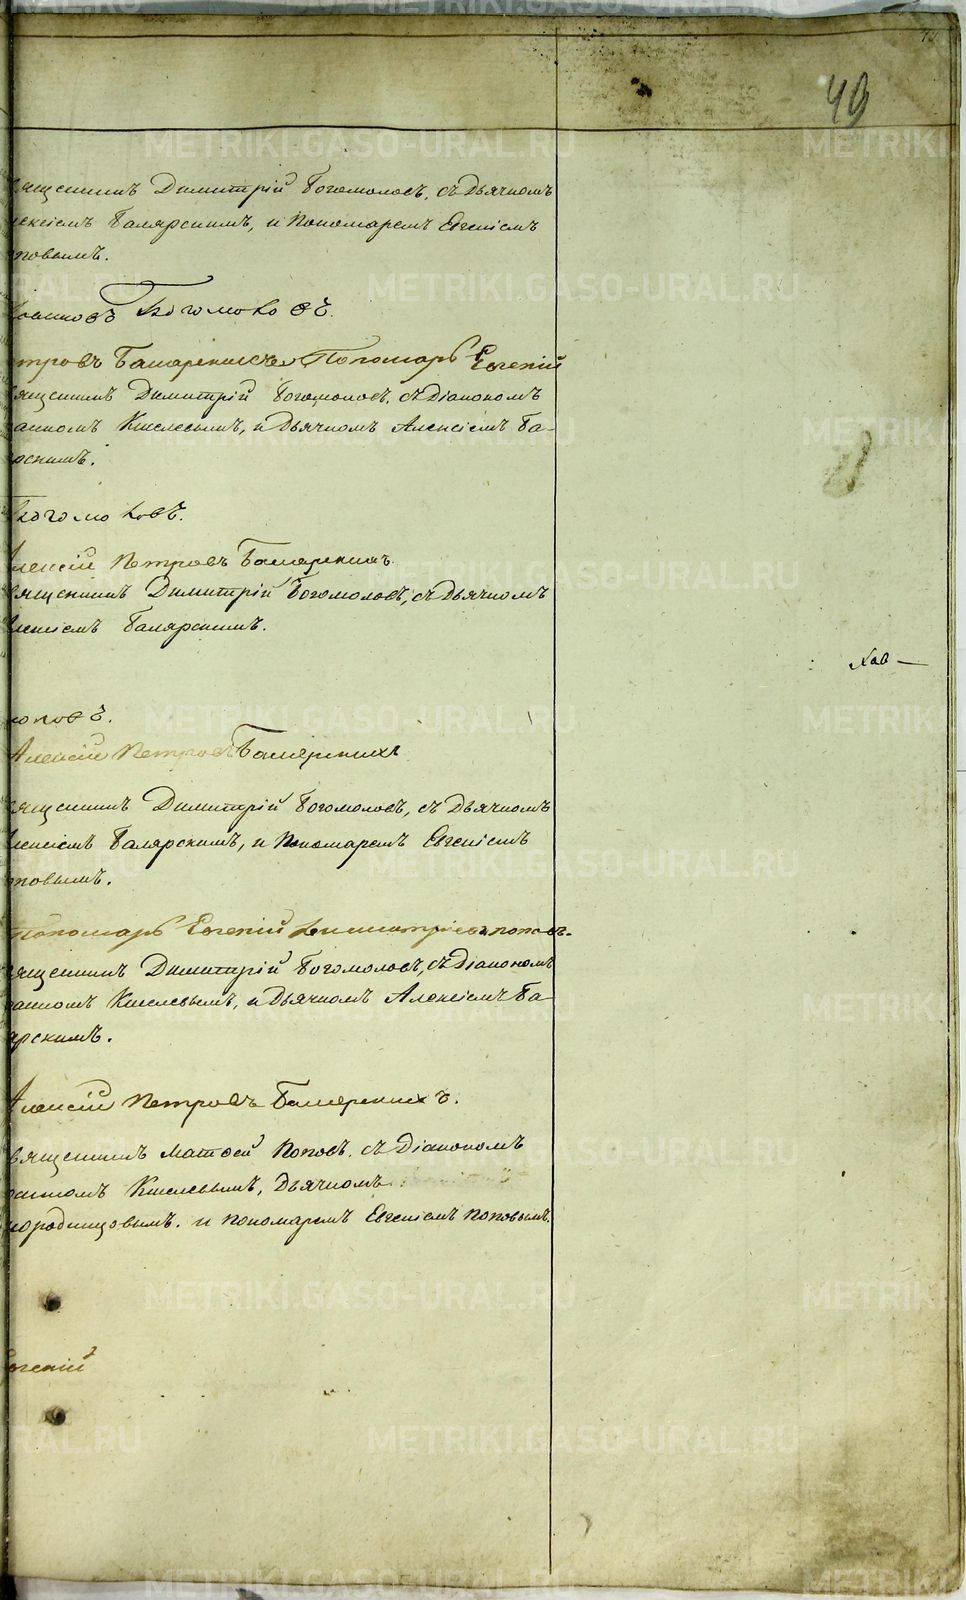 49
ященникъ Димитрій Богомоловъ, съ Дьячкомъ
лексіемъ Балярскимъ, и Пономаремъ Евгеніемъ
оповымъ.
Іоанновъ Богомоловъ.
тровъ Пономарь Евгеній
ященникъ Димитрій Богомоловъ, съ Діакономъ
анномъ Киселевымъ, и Дьячкомъ Алексіемъ Ба-
рскимъ.
Богомоловъ.
Алексій Петровъ
вященникъ Димитрій Богомоловъ, съ Дьячкомъ
лексіемъ Балярскимъ.
поповъ.
Алексій Петровъ
ященникъ Димитрій Богомоловъ, съ Дьячкомъ
лексіемъ Балярскимъ, и Пономаремъ Евгеніемъ
оповымъ.
Пономарь Евгеній Димитріевъ поповъ.
ященникъ Димитрій Богомоловъ, съ Діакономъ
анномъ Киселевымъ, и Дьячкомъ Алексіемъ Ба-
ярскимъ.
Алексій Петровъ
вященникъ Матѳей Поповъ, съ Діакономъ
анномъ Киселевымъ, Дьячкомъ
городицовымъ. и пономаремъ Евгеніемъ Поповымъ.
вгеній
METRIKI.GASO-URAL.RU